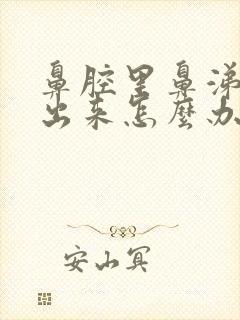 鼻腔里鼻涕
出来怎麼办
安山冥